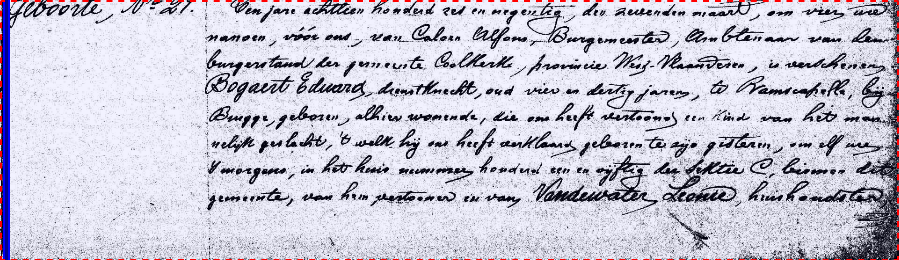 Geboorte, No 21.
Ten jare achttien honderd zes en negentig, den zevenden maart, om vier ure
namoen, vóór ons, van Caloen Alfons, Burgemeester, Ambtenaar van den
burgerstand der gemeente Coolkerke, provincie West-Vlaanderen, is verschenen
Bogaert Eduard, dienstknecht, oud vier en dertig jaren, te Ramscapelle, bij
Brugge, geboren, alhier wonende, die ons heeft vertoond een kind van het man
nelijk geslacht, 't welk hij ons heeft verklaard geboren te zijn gisteren, om elf ure
's morgens, in het huis nummer honderd een en vijftig der Sektie C, binnen die
gemeente, van hem vertooner en van Vandewater Leonie, huishoudster